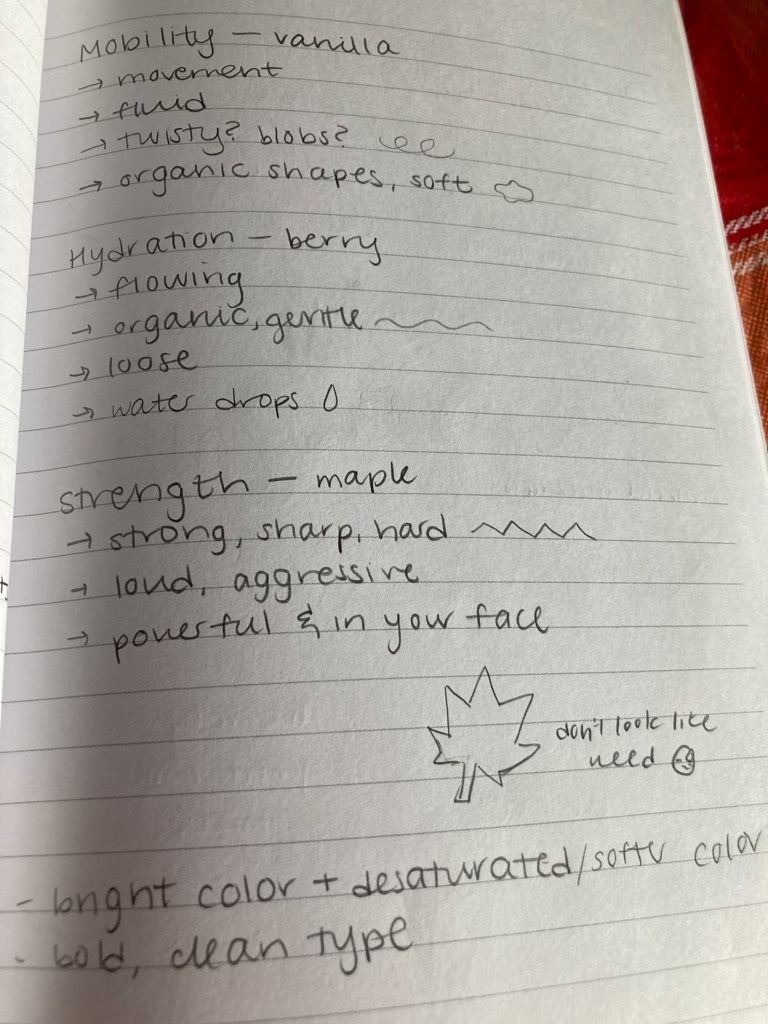 Mobility — vanilla
→ movement
→ fluid
→ twisty? blobs?
→ organic shapes, soft
Hydration — berry
→ flowing
→ organic, gentle
→ loose
→ water drops
strength — maple
→ strong, sharp, hard
→ loud, aggressive
→ powerful & in your face
don't look like
weed
- bright color + desaturated/softer color
- bold, clean type